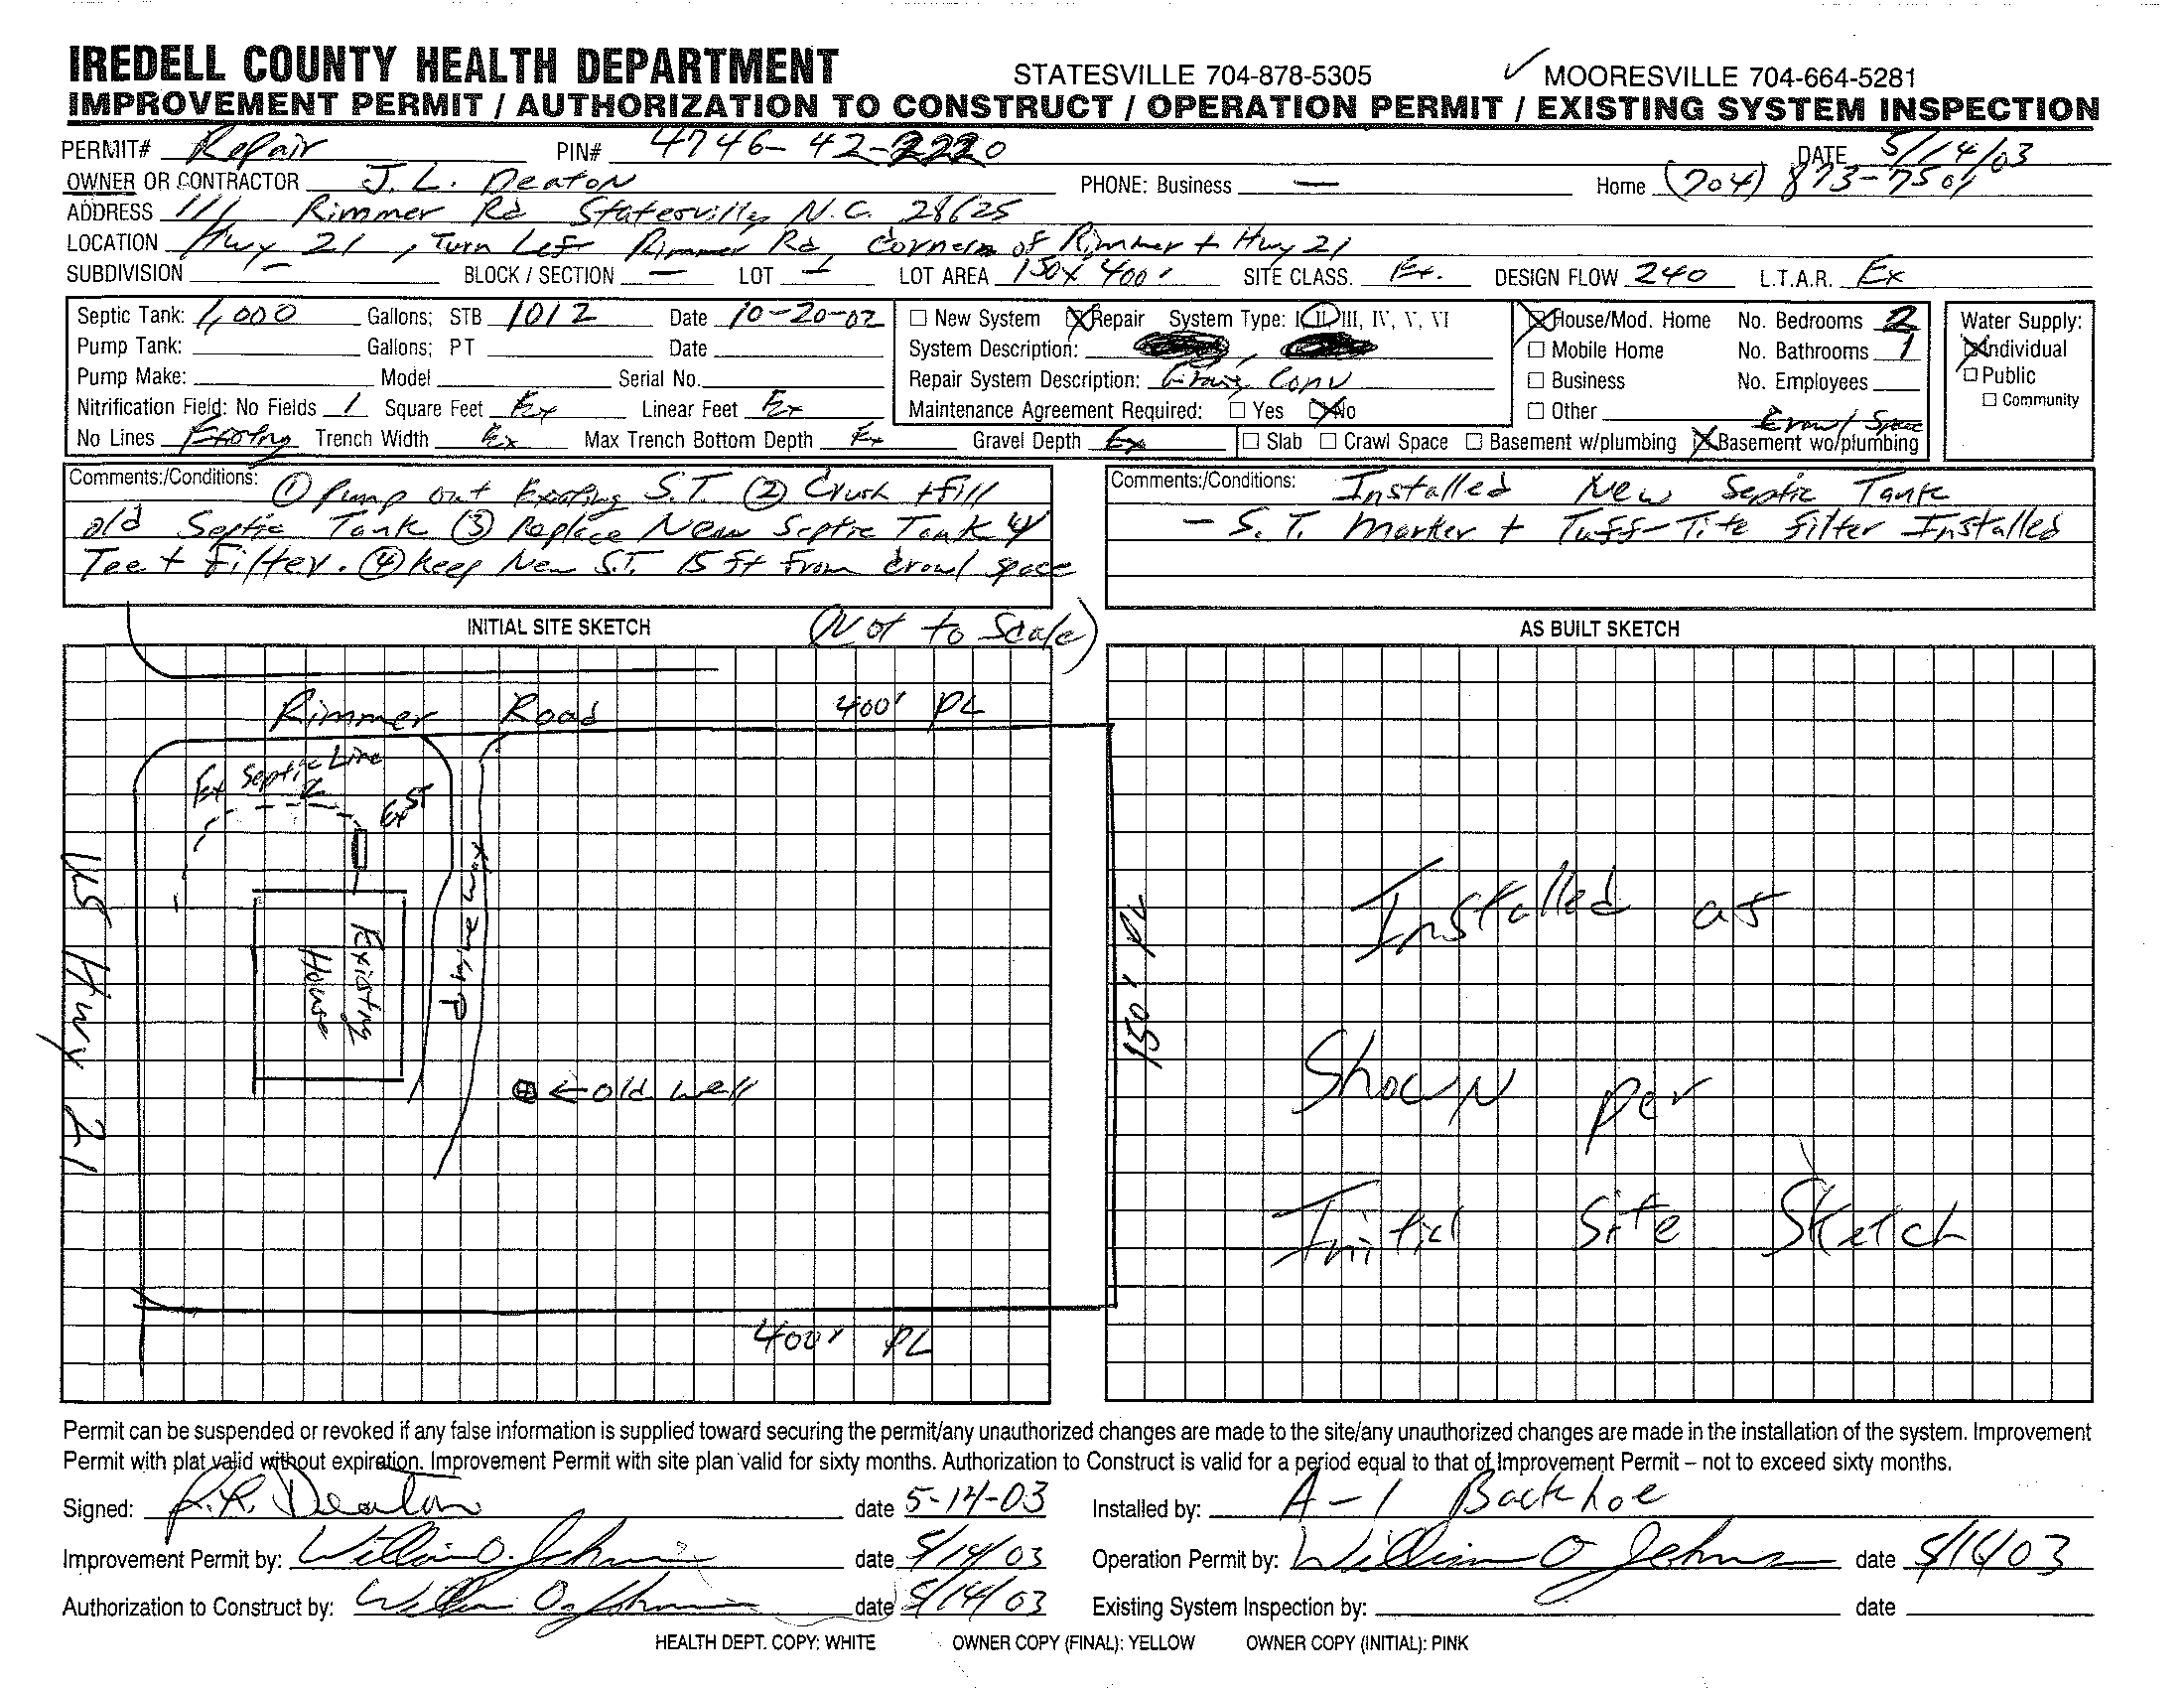 IREDELL COUNTY HEALTH DEPARTMENT STATESVILLE 704-878-5305 ✓ MOORESVILLE 704-664-5281
IMPROVEMENT PERMIT / AUTHORIZATION TO CONSTRUCT / OPERATION PERMIT / EXISTING SYSTEM INSPECTION
PERMIT# Repair PIN# 4746-42-2220 DATE 5/14/03
OWNER OR CONTRACTOR J. L. Deaton PHONE: Business — Home (704) 873-7501
ADDRESS 111 Rimmer Rd Statesville, N.C. 28625
LOCATION Hwy 21, Turn Left Rimmer Rd, Corner of Rimmer + Hwy 21
SUBDIVISION — BLOCK / SECTION — LOT — LOT AREA 150 x 400' SITE CLASS. Ex. DESIGN FLOW 240 L.T.A.R. Ex
Septic Tank: 1,000 Gallons; STB 1012 Date 10-20-02
Pump Tank: Gallons; PT Date
Pump Make: Model Serial No.
Nitrification Field: No Fields 1 Square Feet Ex Linear Feet Ex
No Lines Existing Trench Width Ex Max Trench Bottom Depth Ex Gravel Depth Ex
☐ New System ☒ Repair System Type: I, II, III, IV, V, VI
System Description:
Repair System Description: Conv
Maintenance Agreement Required: ☐ Yes ☒ No
☒ House/Mod. Home No. Bedrooms 2
☐ Mobile Home No. Bathrooms 1
☐ Business No. Employees
☐ Other Crawl Space
☐ Slab ☐ Crawl Space ☐ Basement w/plumbing ☒ Basement wo/plumbing
Water Supply:
☒ Individual
☐ Public
☐ Community
Comments:/Conditions: ① Pump out Existing S.T. ② Crush + fill
old Septic Tank ③ Replace New Septic Tank w/
Tee + Filter. ④ Keep New S.T. 15 ft From Crawl space
Comments:/Conditions: Installed New Septic Tank
- S.T. Marker + Tuff-Tite filter Installed
INITIAL SITE SKETCH (Not to Scale)
Rimmer Road 400' PL
Ex Septic Line
Ex ST
US Hwy 21
Existing
House
Driveway
←old well
150' PL
400' PL
AS BUILT SKETCH
Installed as
Shown per
Initial Site Sketch
Permit can be suspended or revoked if any false information is supplied toward securing the permit/any unauthorized changes are made to the site/any unauthorized changes are made in the installation of the system. Improvement
Permit with plat valid without expiration. Improvement Permit with site plan valid for sixty months. Authorization to Construct is valid for a period equal to that of Improvement Permit – not to exceed sixty months.
Signed: Deaton date 5-14-03 Installed by: A-1 Backhoe
Improvement Permit by: William O. date 5/14/03 Operation Permit by: William O date 5/16/03
Authorization to Construct by: William O. date 5/14/03 Existing System Inspection by: date
HEALTH DEPT. COPY: WHITE OWNER COPY (FINAL): YELLOW OWNER COPY (INITIAL): PINK